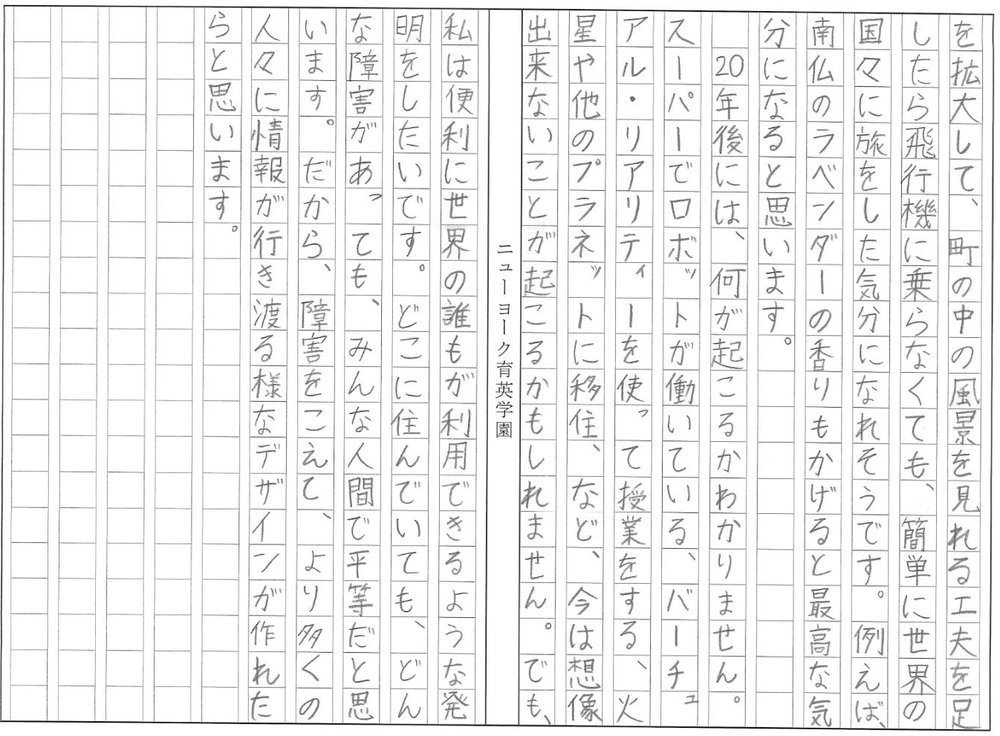 を拡大して、町の中の風景を見れる工夫を足
したら飛行機に乗らなくても、簡単に世界の
国々に旅をした気分になれそうです。例えば、
南仏のラベンダーの香りもかげると最高な気
分になると思います。
20年後には、何が起こるかわかりません。
スーパーでロボットが働いている、バーチュ
アル・リアリティーを使って授業をする、火
星や他のプラネットに移住、など、今は想像
出来ないことが起こるかもしれません。でも、
ニューヨーク育英学園
私は便利に世界の誰もが利用できるような発
明をしたいです。どこに住んでいても、どん
な障害があっても、みんな人間で平等だと思
います。だから、障害をこえて、より多くの
人々に情報が行き渡る様なデザインが作れた
らと思います。